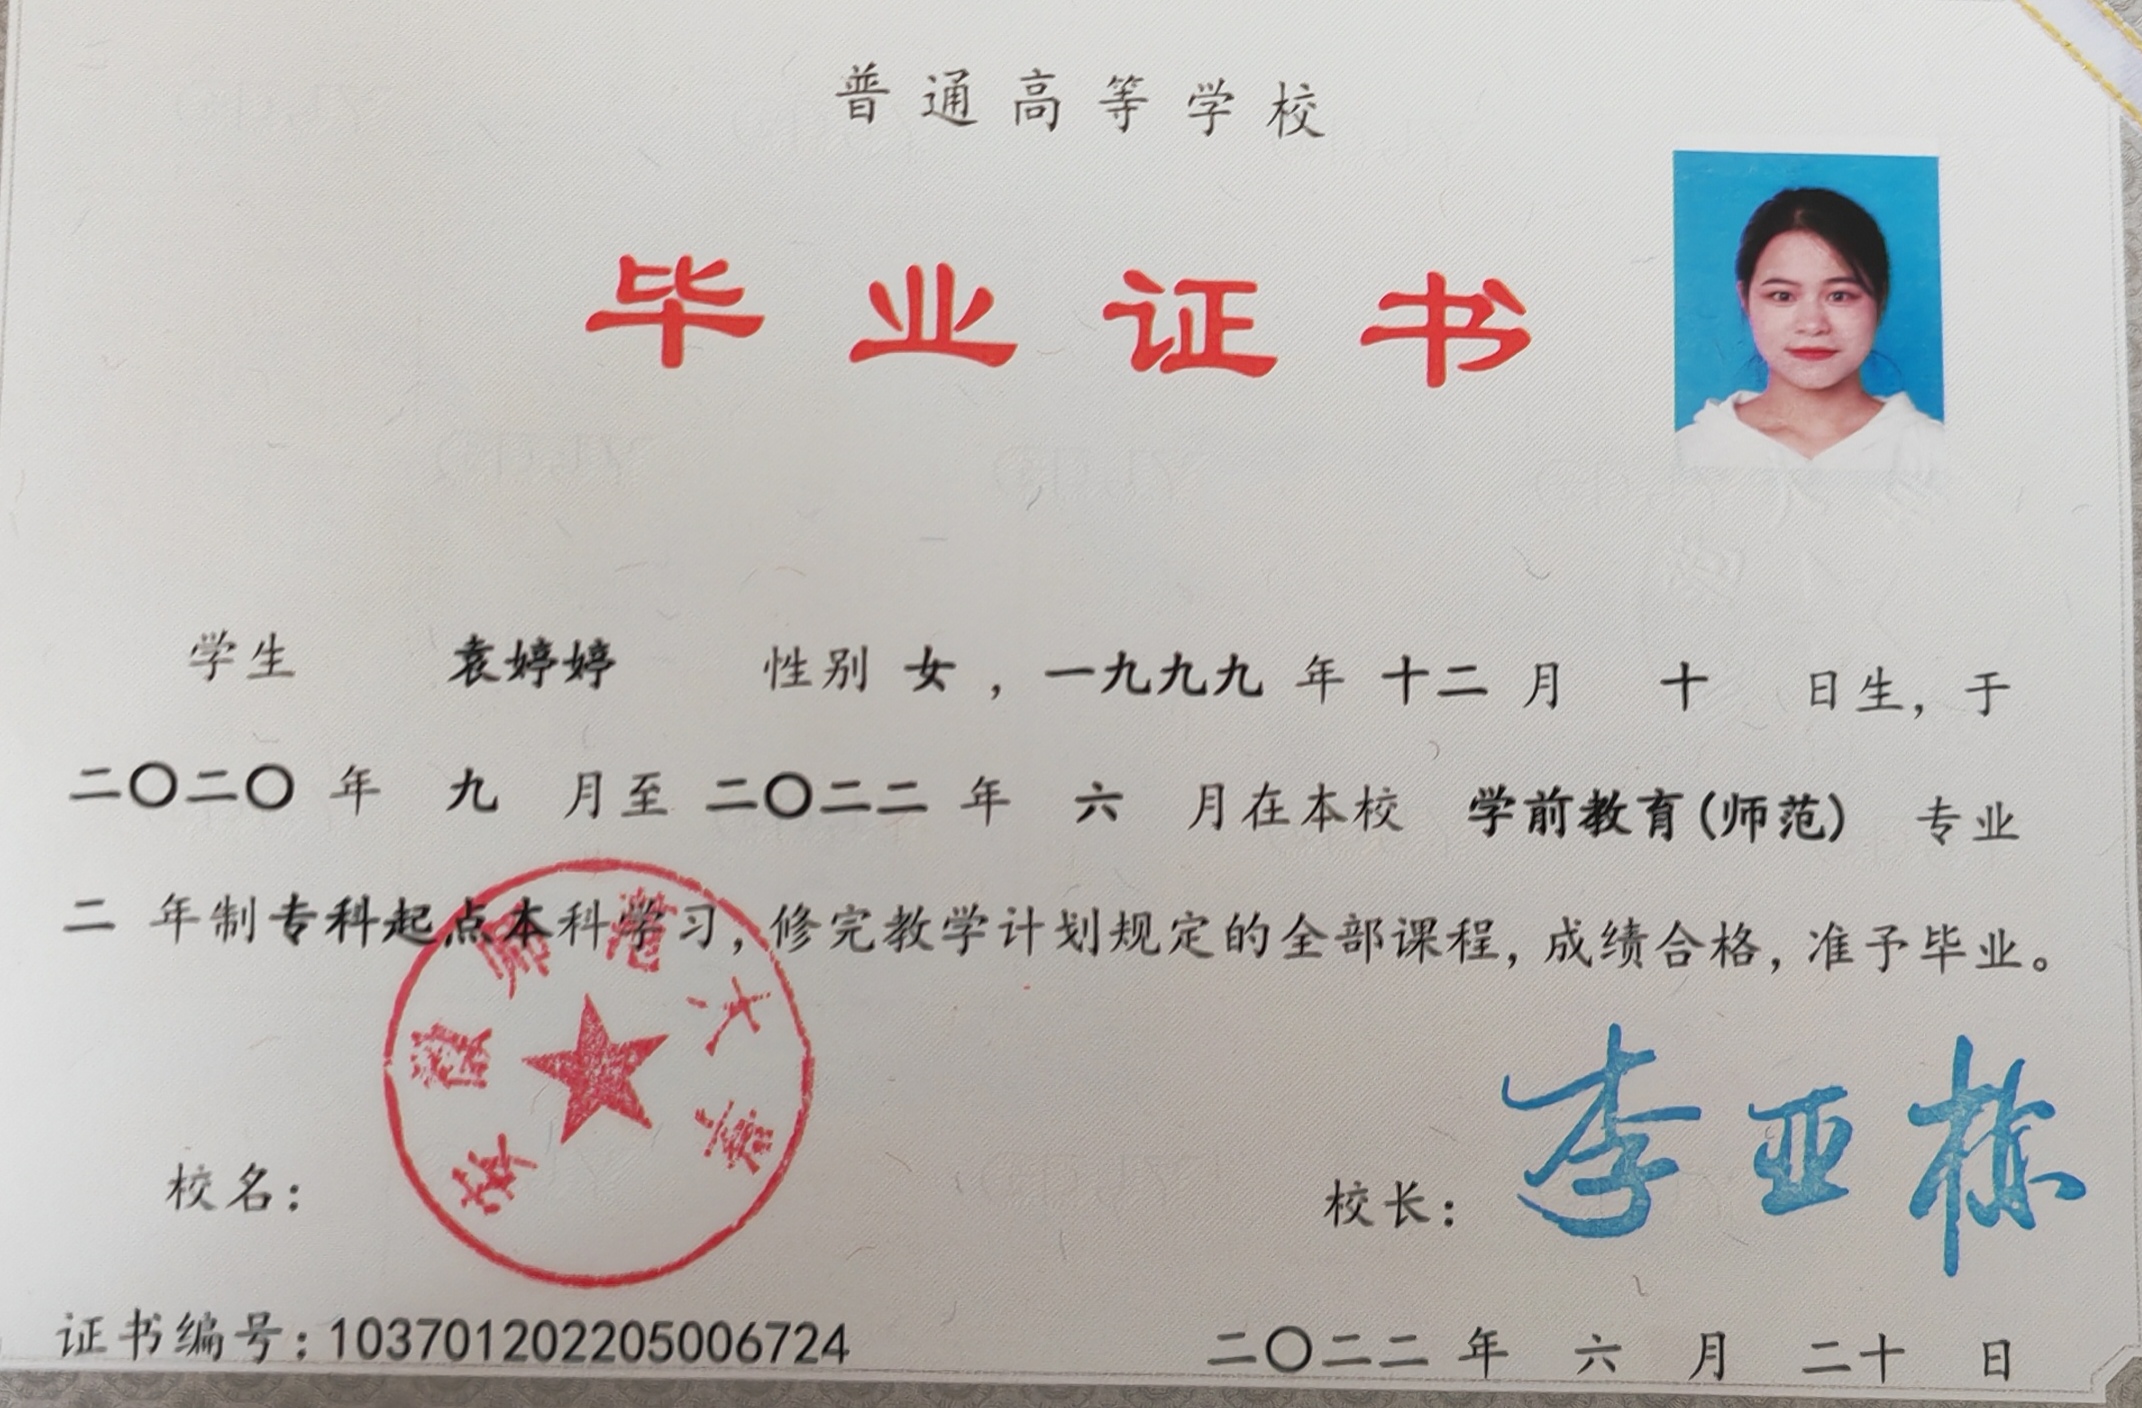 普通高等学校
毕业证书
学生 袁婷婷 性别 女，一九九九 年 十二 月 十 日生，于
二〇二〇 年 九 月至 二〇二二 年 六 月在本校 学前教育(师范) 专业
二 年制专科起点本科学习，修完教学计划规定的全部课程，成绩合格，准予毕业。
师范大学
校名：
校长：李亚栋
证书编号：103701202205006724
二〇二二 年 六 月 二十 日